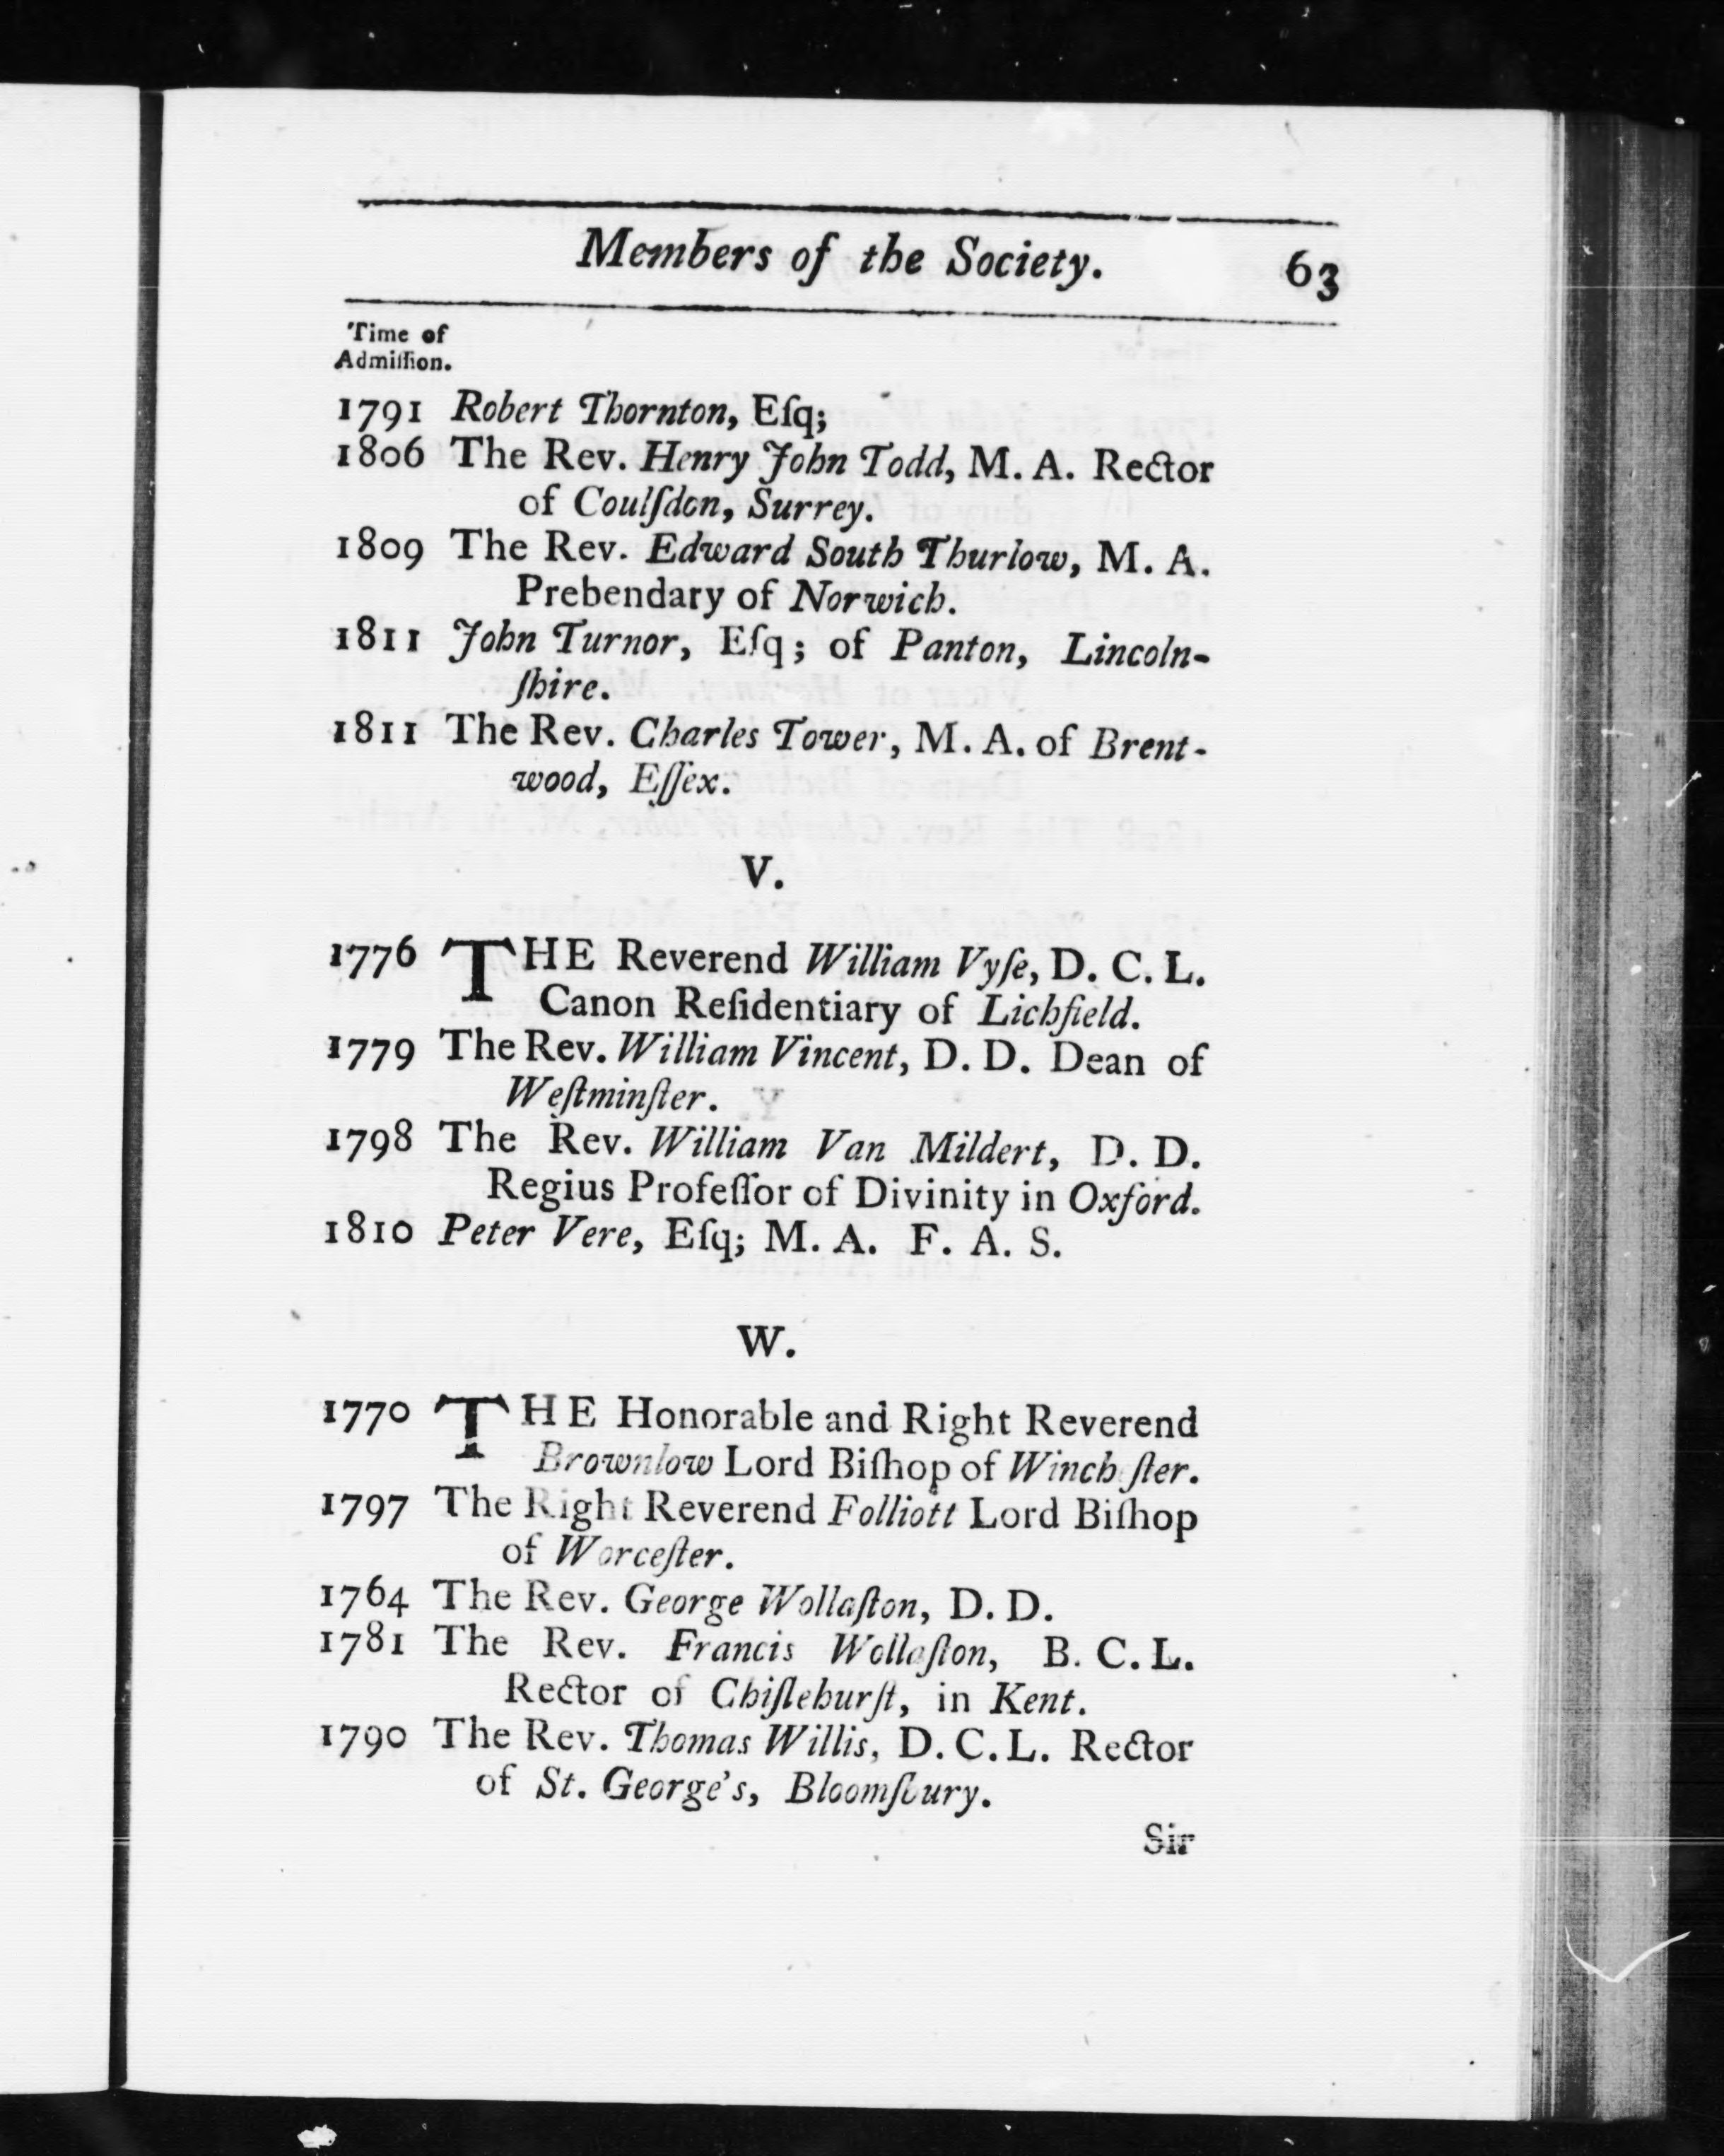 Members of the Society. 63
Time of
Admiſſion.
1791 Robert Thornton, Eſq;
1806 The Rev. Henry John Todd, M. A. Rector
of Coulſdon, Surrey.
1809 The Rev. Edward South Thurlow, M. A.
Prebendary of Norwich.
1811 John Turnor, Eſq; of Panton, Lincoln-
ſhire.
1811 The Rev. Charles Tower, M. A. of Brent-
wood, Eſſex.
V.
1776 THE Reverend William Vyſe, D. C. L.
Canon Reſidentiary of Lichfield.
1779 The Rev. William Vincent, D. D. Dean of
Weſtminſter.
1798 The Rev. William Van Mildert, D. D.
Regius Profeſſor of Divinity in Oxford.
1810 Peter Vere, Eſq; M. A. F. A. S.
W.
1770 THE Honorable and Right Reverend
Brownlow Lord Biſhop of Wincheſter.
1797 The Right Reverend Folliott Lord Biſhop
of Worceſter.
1764 The Rev. George Wollaſton, D. D.
1781 The Rev. Francis Wollaſton, B. C. L.
Rector of Chiſlehurſt, in Kent.
1790 The Rev. Thomas Willis, D. C. L. Rector
of St. George's, Bloomſbury.
Sir